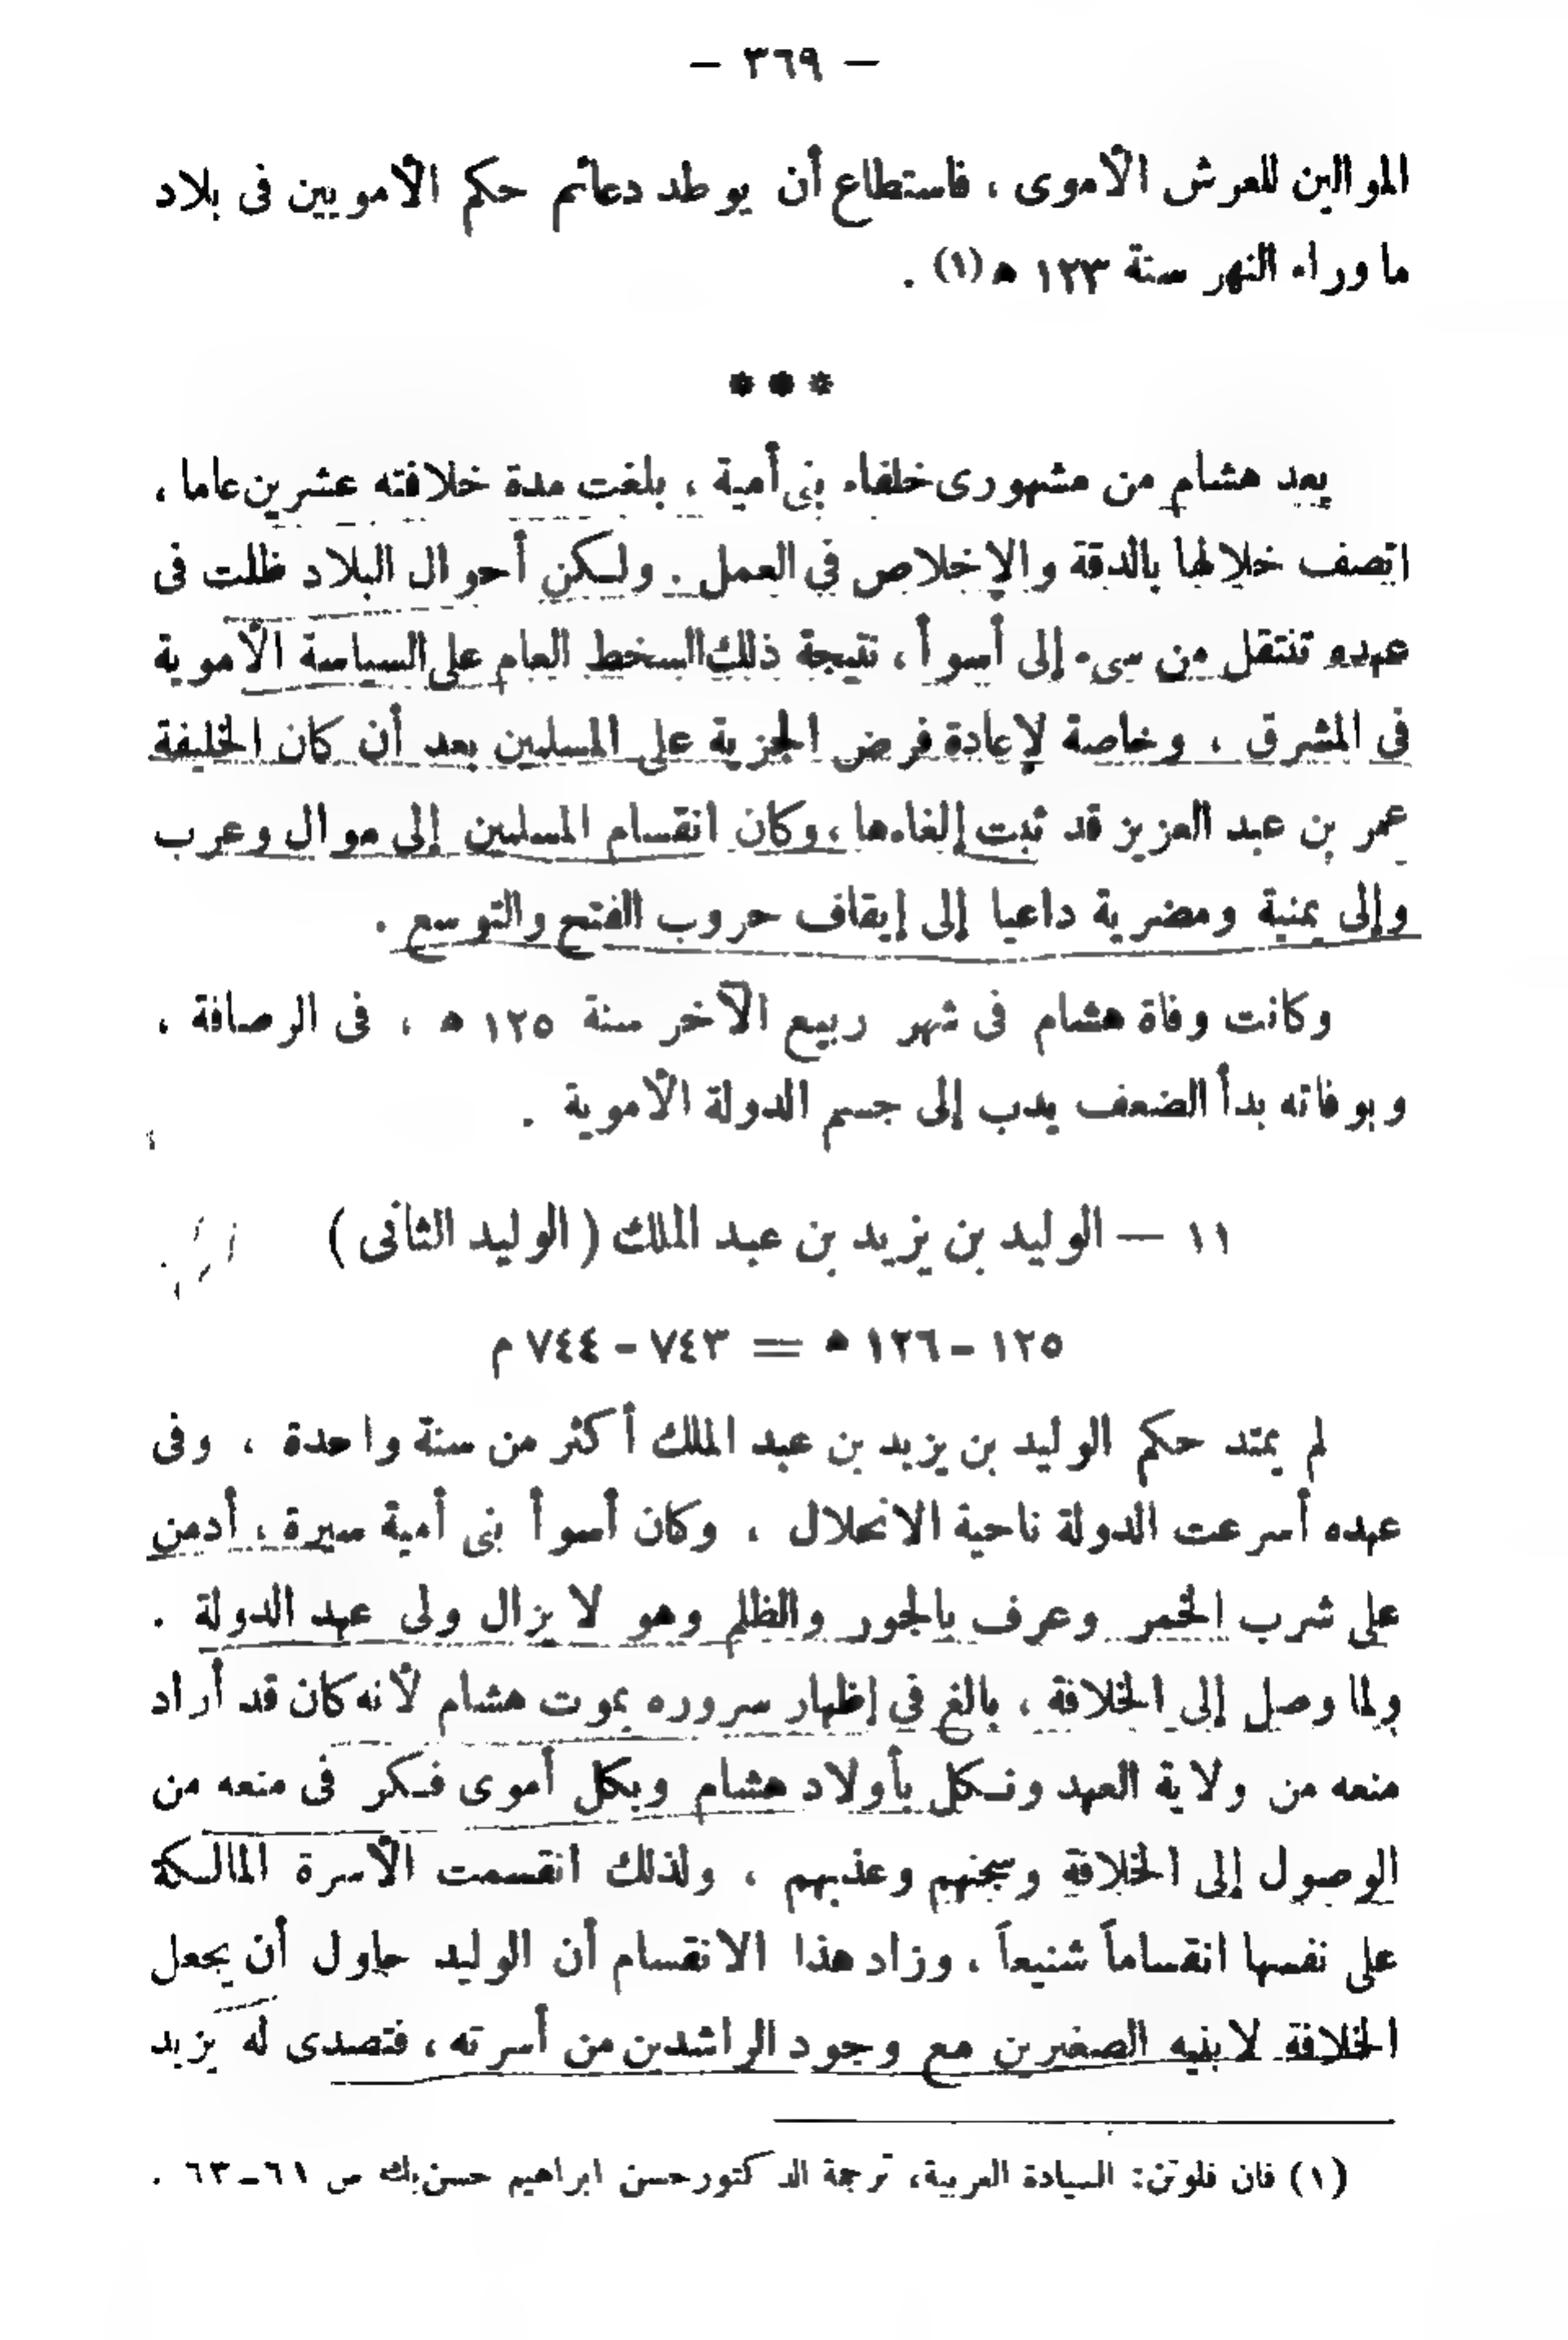 — ٣٦٩ —
الموالين للعرش الأموى ، فاستطاع أن يوطد دعائم حكم الأمويين فى بلاد
ما وراء النهر سنة ١٢٣ ه (١) .
* * *
يعد هشام من مشهورى خلفاء بنى أمية ، بلغت مدة خلافته عشرين عاما ،
اتصف خلالها بالدقة والإخلاص فى العمل . ولكن أحوال البلاد ظلت فى
عهده تنتقل من سىء إلى أسوأ ، نتيجة ذلك السخط العام على السياسة الأموية
فى المشرق ، وخاصة لإعادة فرض الجزية على المسلمين بعد أن كان الخليفة
عمر بن عبد العزيز قد ثبت إلغاءها ، وكان انقسام المسلمين إلى موال وعرب
وإلى يمنية ومضرية داعيا إلى إيقاف حروب الفتح والتوسع .
وكانت وفاة هشام فى شهر ربيع الآخر سنة ١٢٥ ه ، فى الرصافة ،
وبوفاته بدأ الضعف يدب إلى جسم الدولة الأموية .
١١ — الوليد بن يزيد بن عبد الملك ( الوليد الثانى )
١٢٥ - ١٢٦ ه = ٧٤٣ - ٧٤٤ م
لم يمتد حكم الوليد بن يزيد بن عبد الملك أكثر من سنة واحدة ، وفى
عهده أسرعت الدولة ناحية الانحلال . وكان أسوأ بنى أمية سيرة ، أدمن
على شرب الخمر وعرف بالجور والظلم وهو لا يزال ولى عهد الدولة .
ولما وصل إلى الخلافة ، بالغ فى إظهار سروره بموت هشام لأنه كان قد أراد
منعه من ولاية العهد ونكل بأولاد هشام وبكل أموى فكر فى منعه من
الوصول إلى الخلافة وسجنهم وعذبهم ، ولذلك انقسمت الأسرة المالكة
على نفسها انقساماً شنيعاً ، وزاد هذا الانقسام أن الوليد حاول أن يجعل
الخلافة لابنيه الصغيرين مع وجود الراشدين من أسرته ، فتصدى له يزيد
(١) فان فلوتن: السيادة العربية، ترجمة الدكتور حسن ابراهيم حسن بك ص ٦١ـ٦٣ .